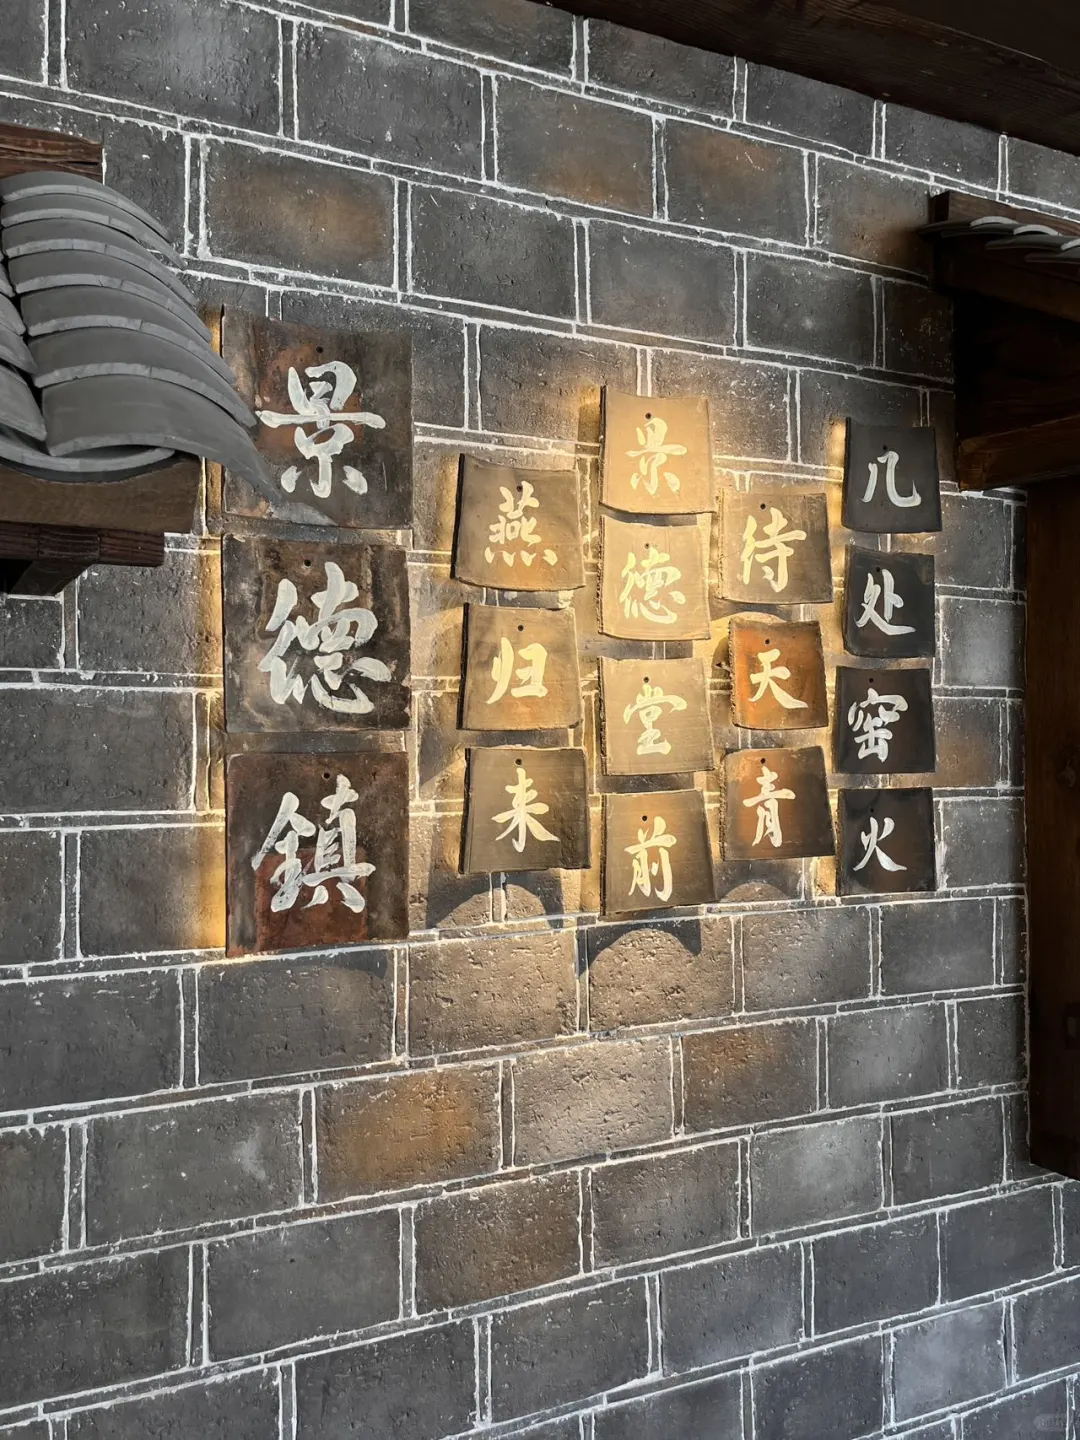 几处窑火
待天青
景德堂前
燕归来
景德鎮